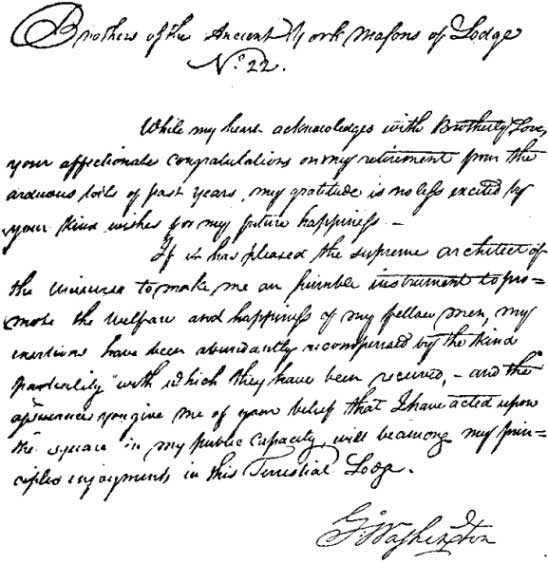 Brothers of the Ancient York Masons of Lodge
No. 22.
While my heart acknowledges with Brotherly Love,
your affectionate congratulations on my retirement from the
arduous toils of past years, my gratitude is no less excited by
your kind wishes for my future happiness –
If it has pleased the supreme architect of
the Universe to make me an humble instrument to pro=
mote the welfare and happiness of my fellow men, my
exertions have been abundantly recompensed by the kind
partiality with which they have been received, – and the
assurances you give me of your belief that I have acted upon
the square in my public capacity, will be among my prin=
ciples enjoyments in this Terrestial Lodge.
G. Washington